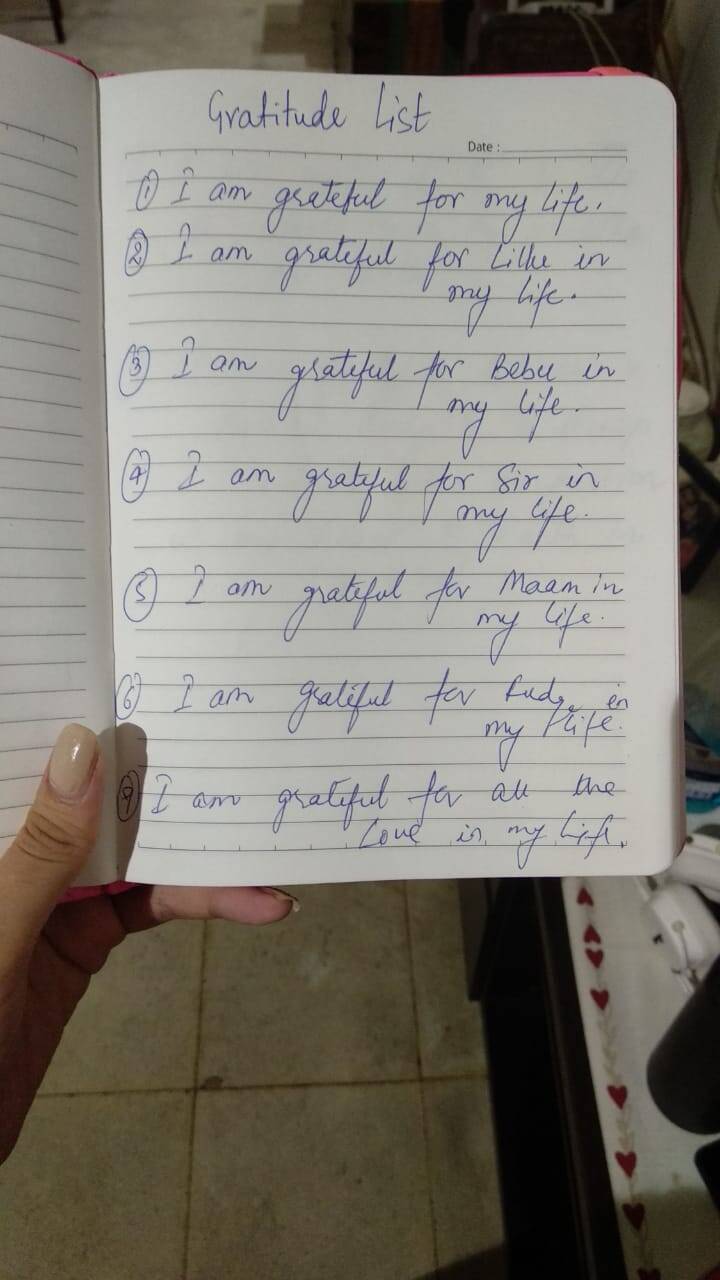 Gratitude List
Date :
① I am grateful for my life.
② I am grateful for Lilhe in
my life.
③ I am grateful for Bebu in
my life.
④ I am grateful for Sir in
my life.
⑤ I am grateful for Maam in
my life.
⑥ I am grateful for in
my life.
I am grateful for all the
Love in my life.